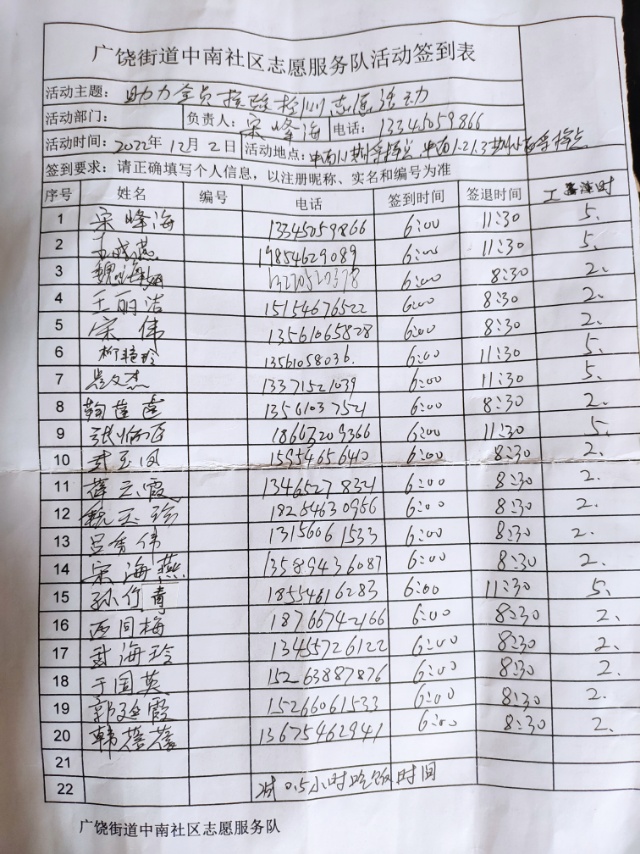 广饶街道中南社区志愿服务队活动签到表
活动主题: 助力全员核酸检测志愿活动
活动部门: 负责人: 宋峰海 电话: 13345059866
活动时间: 2022年12月2日 活动地点: 中南
签到要求: 请正确填写个人信息，以注册昵称、实名和编号为准
序号 姓名 编号 电话 签到时间 签退时间 时
1 宋峰海 13345059866 6:00 11:30 5.
2 19854629089 6:00 11:30 5.
3 6:00 8:30 2.
4 王明洁 15154676522 6:00 8:30 2.
5 宋伟 13561065828 6:00 8:30 2.
6 柳艳玲 13561058036. 6:00 11:30 5.
7 13371521039 6:00 11:30 5.
8 13561037521 6:00 8:30 2.
9 18663209366 6:00 11:30 5.
10 武玉凤 15954656640 6:00 8:30 2.
11 薛云霞 13465278321 6:00 8:30 2.
12 魏玉珍 18254630956 6:00 8:30 2.
13 吕香伟 13156061533 6:00 8:30 2.
14 宋海燕 13589436087 6:00 8:30 2.
15 孙竹青 18554616283 6:00 11:30 5.
16 西同梅 18766742166 6:00 8:30 2.
17 武海玲 13455726122 6:00 8:30 2.
18 于国英 15263887876 6:00 8:30 2.
19 郭延霞 15266061533 6:00 8:30 2.
20 韩 13675462941 6:00 8:30 2.
21
22 减0.5小时吃饭时间
广饶街道中南社区志愿服务队